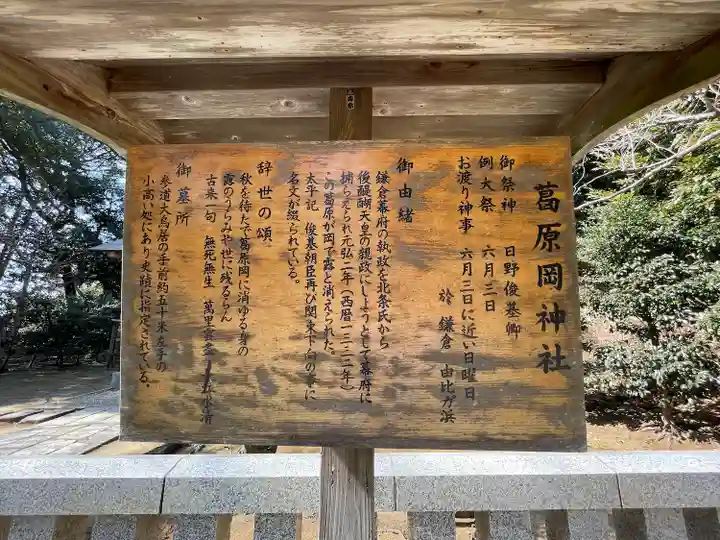 葛原岡神社
御祭神　日野俊基卿
例大祭　六月三日
お渡り神事　六月三日に近い日曜日
於　鎌倉　由比ガ浜
御由緒
鎌倉幕府の執政を北条氏から
後醍醐天皇の親政にしようとして幕府に
捕らえられ元弘二年（西暦一三三二年）
この葛原が岡で露と消えられた。
太平記　俊基朝臣再び関東下向の事に
名文が綴られている。
辞世の頌
秋を待たで葛原岡に消ゆる身の
露のうらみや世に残るらん
古来一句　無死無生　萬里雲尽　長江水清
御墓所
参道大鳥居の手前約五十米左手の
小高い処にあり史蹟に指定されている。